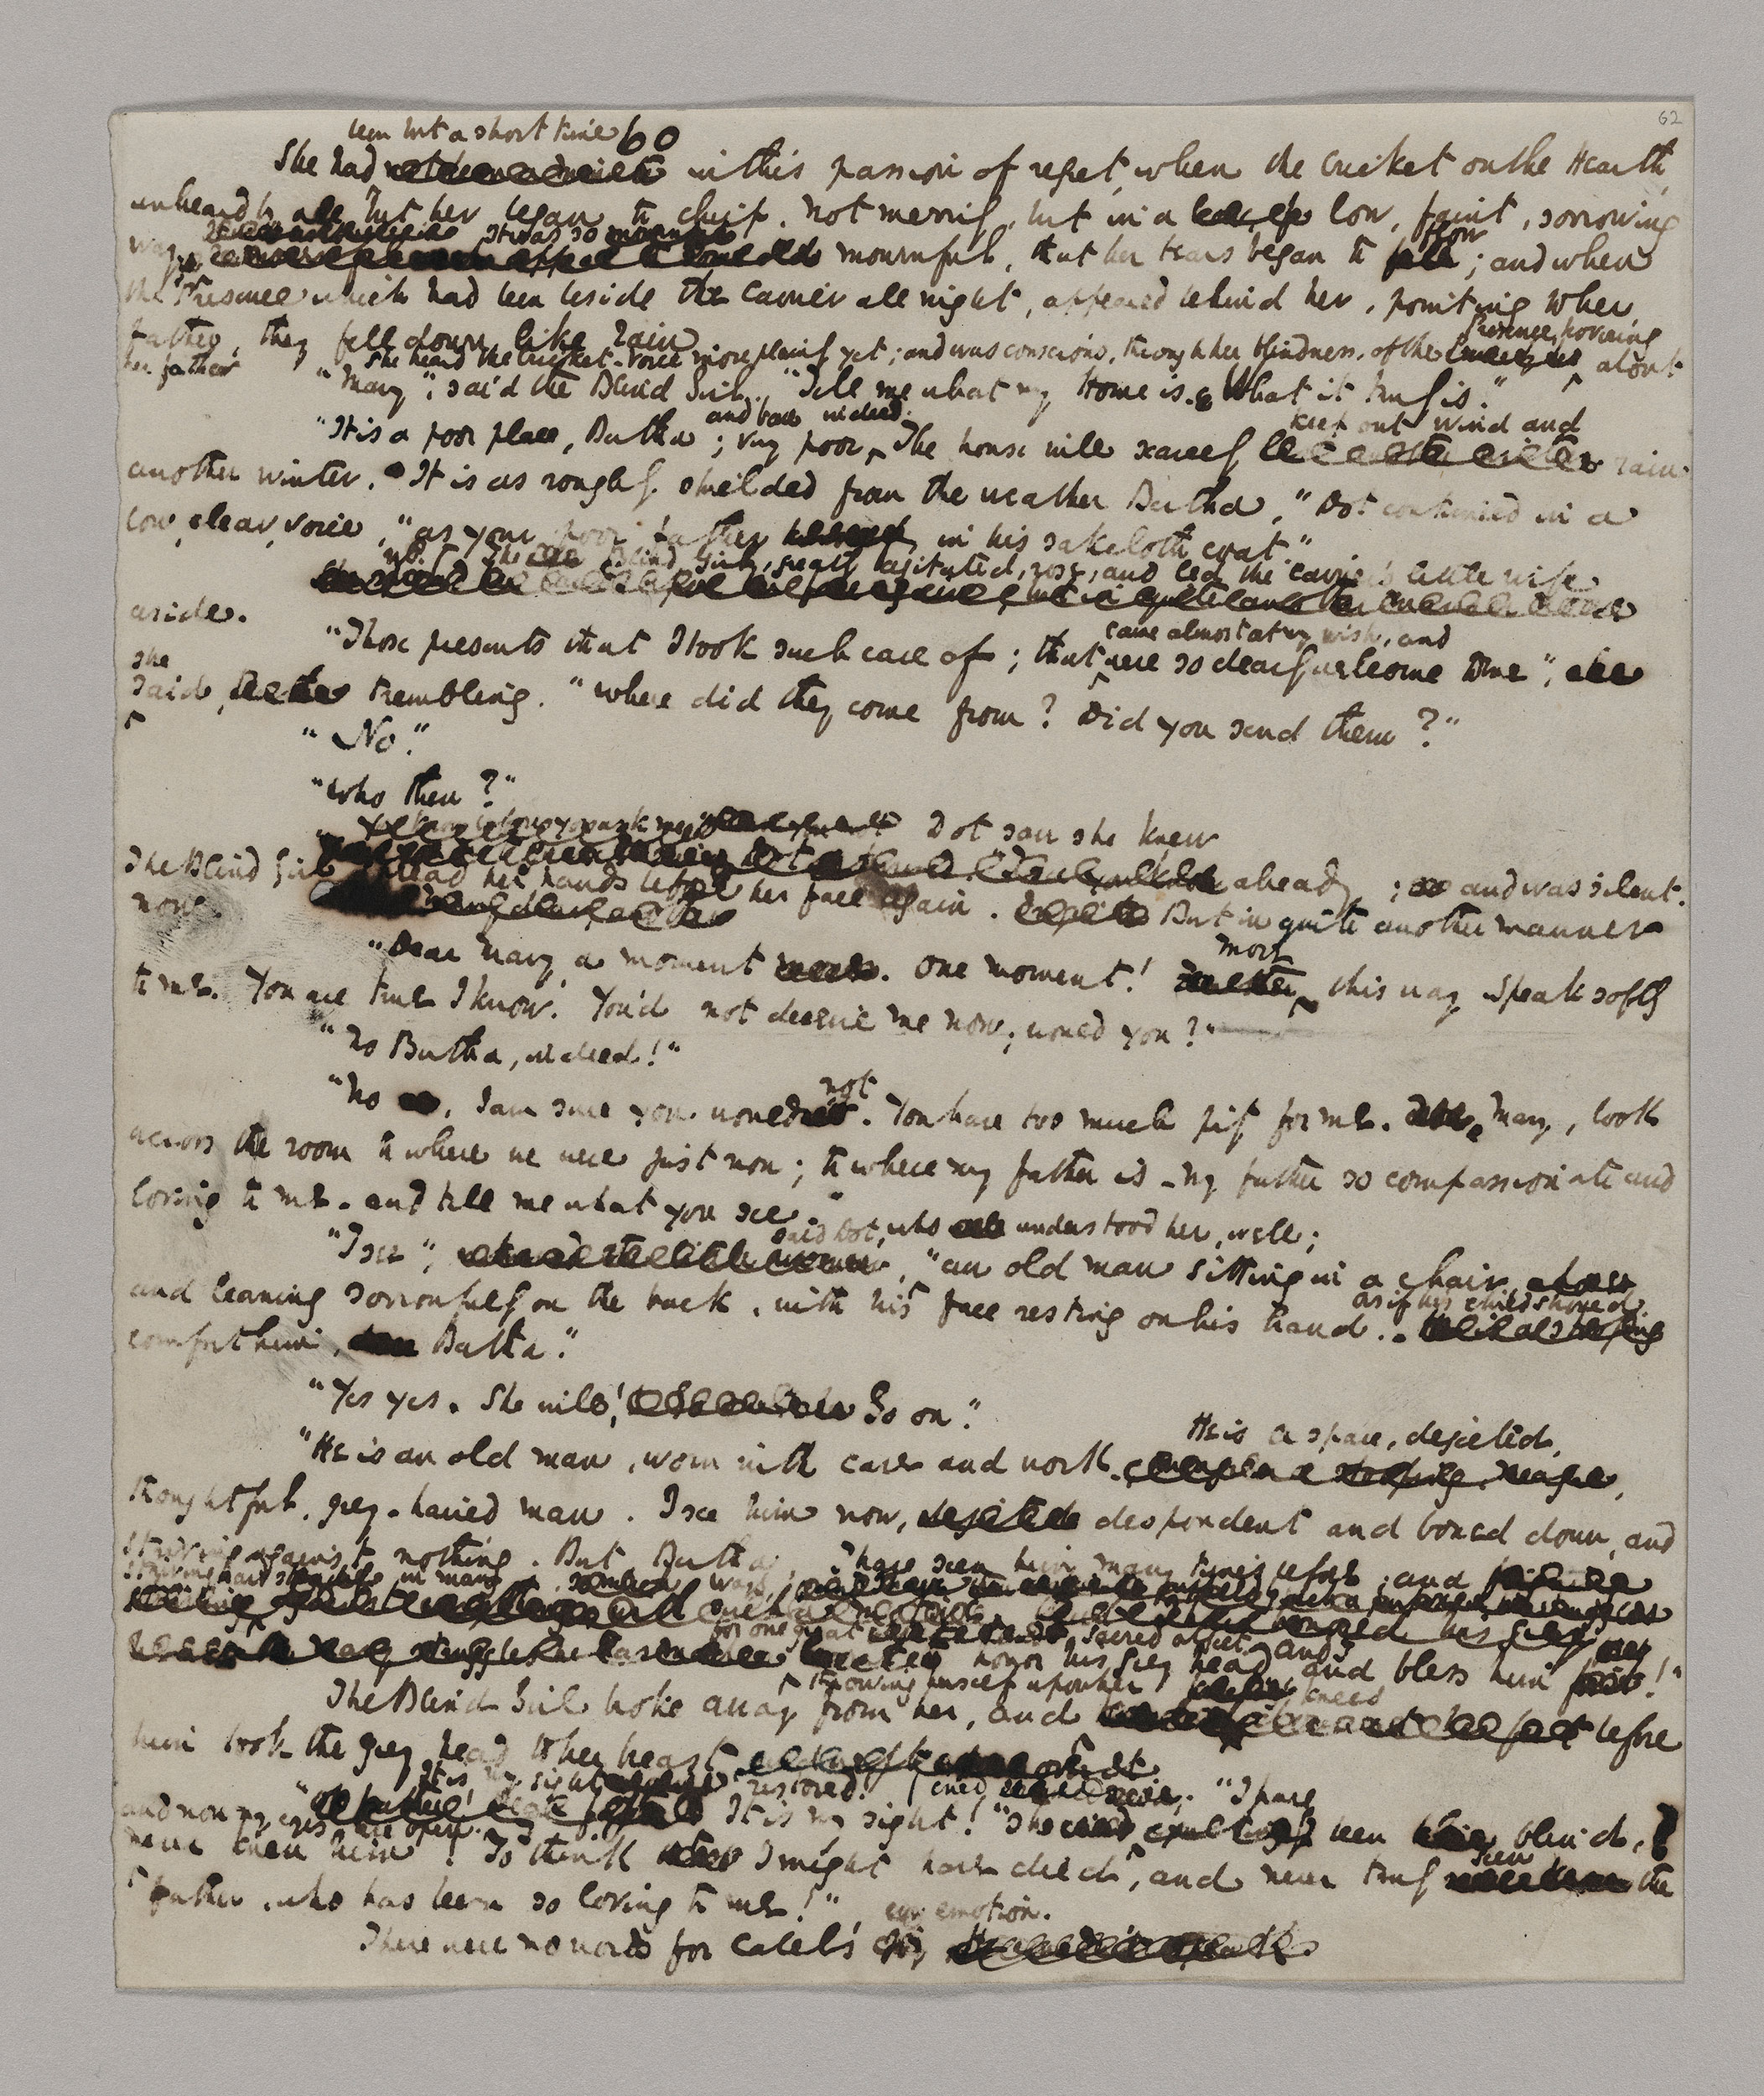 62
60
been but a short time
She had in this passion of regret, when the Cricket on the Hearth,
unheard by all but her began to chirp. Not merrily, but in a low, faint, sorrowing
It was so flow
way. mournful, that her tears began to ; and when
the Presence which had been beside the Carrier all night, appeared behind her, pointing to her
father, they fell down like rain.
Presence, hovering
She heard the Cricket-voice more plainly yet; and was conscious, through her blindness, of the about
her father.
"Mary", said the Blind Girl. "Tell me what my Home is. What it truly is."
and bare indeed. keep out wind and
"It is a poor place, Bertha; very poor The house will scarcely rain
another winter. It is as roughly shielded from the weather Bertha," Dot continued in a
low, clear, voice, "as your poor father in his sakcloth coat."
The Blind Girl, greatly agitated, rose, and led the Carrier's little wife
aside.
came almost at my wish, and
"Those presents that I took such care of; that were so dearly welcome to me",
she
said, trembling. "where did they come from? Did you send them?"
"No."
"Who then?"
Dot saw she knew
already; and was silent.
The Blind Girl spread her hands before her face again. But in quite another manner
now.
"Dear Mary, a moment. One moment! More this way. Speak softly
to me. You are true I know. You'd not deceive me now; would you?"
"No Bertha, indeed!"
not
"No, I am sure you would. You have too much pity for me. Mary, look
across the room to where we were just now; to where my father is - my father so compassionate and
loving to me - and tell me what you see."
said Dot, who understood her, well;
"I see", "an old man sitting in a chair,
and leaning sorrowfully on the back, with his face resting on his hand.
as if his child should
comfort him, Bertha."
"Yes yes. She will! Go on."
He is a spare, dejected,
"He is an old man, worn with care and work.
thoughtful, grey-haired man. I see him now, despondent and bowed down, and
striving against nothing. But Bertha, I have seen him many times before; and
striving hard in many ways
for one great sacred object. And I
honor his grey head, and bless him!"
throwing herself upon her knees
The Blind Girl broke away from her, and before
him took the grey head to her heart.
It is my sight restored!
It is my sight!" she cried "I have been blind,
and now my eyes are open. I
never knew him! To think I might have died, and never truly seen the
father, who has been so loving to me!"
emotion.
There were no words for Caleb's